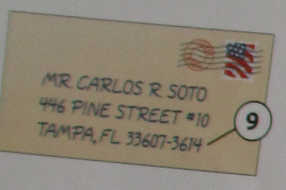 MR. CARLOS R. SOTO
446 PINE STREET #10
TAMPA, FL 33607-3614
9